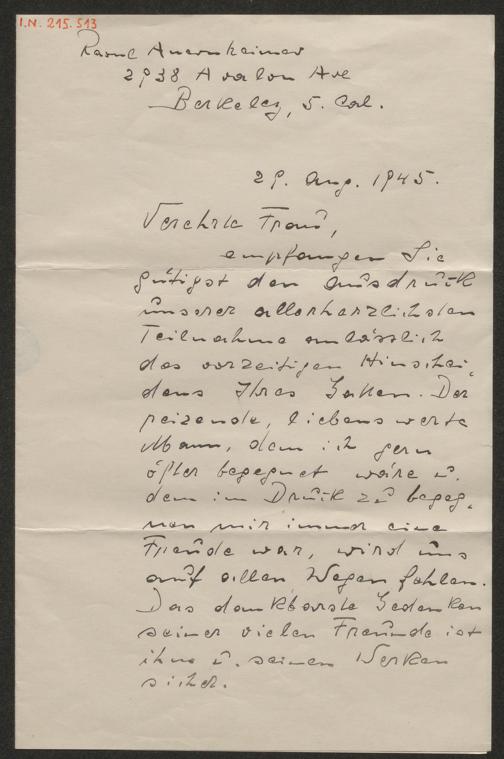 I.N. 215.513
Raoul Auernheimer
2938 Avalon Ave
Berkeley, 5. Cal.
29. Aug. 1945.
Verehrte Frau,
empfangen Sie
gütigst den Ausdruck
unserer allerherzlichsten
Teilnahme anlässlich
des vorzeitigen Hinschei,
dens Ihres Gatten. Der
reizende, liebenswerte
Mann, dem ich gern
öfter begegnet wäre u.
dem im Druck zu begeg,
nen mir immer eine
Freude war, wird uns
auf allen Wegen fehlen.
Das dankbarste Gedenken
seiner vielen Freunde ist
ihm u. seinen Werken
sicher.